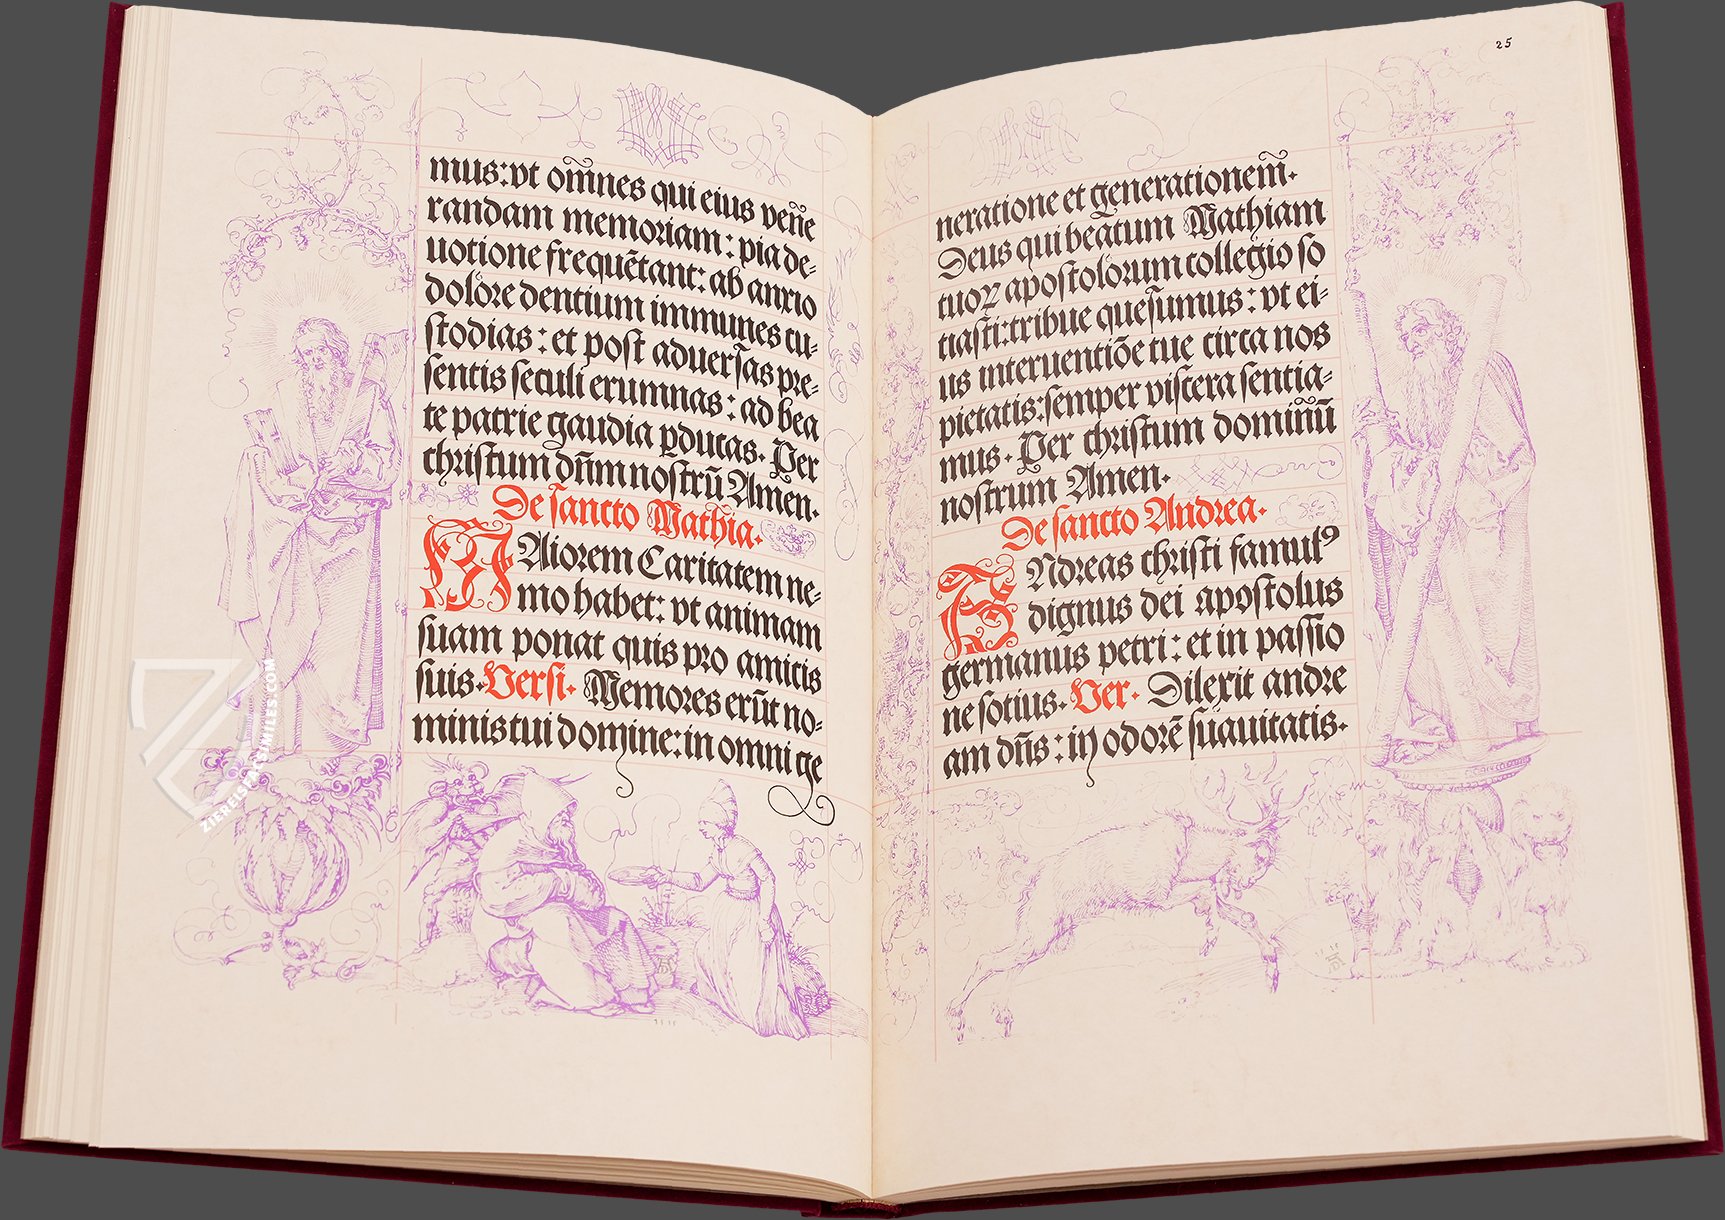 mus: vt om̄nes qui eius vene̅
randam memoriam: pia de-
uotione frequētant: ab anxio
dolore dentium immunes cu-
stodias: et post aduersas pre-
sentis seculi erumnas: ad bea
te patrie gaudia ꝑducas. Per
christum dn̄m nostrū Amen.
De sancto Mathia.
MAiorem Caritatem ne-
mo habet: vt animam
suam ponat quis pro amicis
suis. Versi. Memores erūt no-
minis tui domine: in omni ge
25
neratione et generationem̄.
Deus qui beatum Mathiam
tuoꝝ apostolorum collegio so
ciasti: tribue quesumus: vt ei-
us interuentiōe tue circa nos
pietatis: semper viscera sentia-
mus. Per christum domin̄ū
nostrum Amen.
De sancto Andrea.
ANdreas christi famulꝰ
dignus dei apostolus
germanus petri: et in passio
ne socius. Ver. Dilexit andre
am dn̄s: in odorē suauitatis.
ZIEREIS FACSIMILES.COM